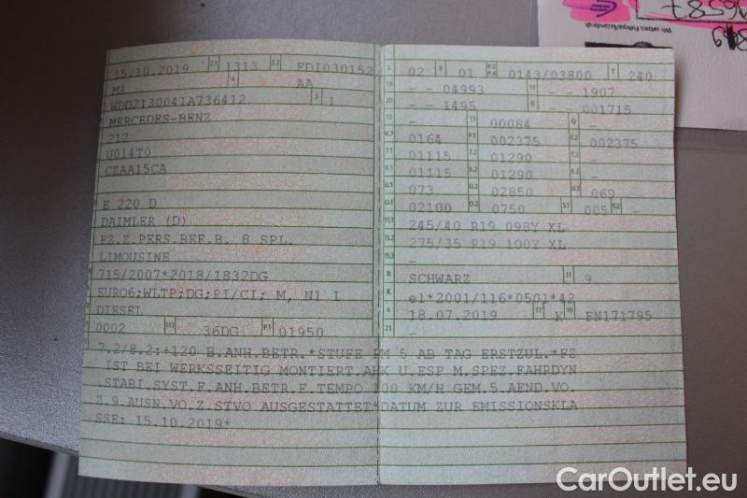 15.10.2019 1313 FDI030152
M1 AA
WDD2130041A736412 1
MERCEDES-BENZ
212
U014T0
CZAA15CA
E 220 D
DAIMLER (D)
FZ.Z.PERS.BEF.B. 8 SPL.
LIMOUSINE
715/2007*2018/1832DG
EURO6;WLTP;DG;PI/CI; M, N1 I
DIESEL
0002 36DG 01950
02 01 0143/03800 240
- - 04993 - - 1907
- - 1495 - 001715
- 00084 -
0164 002375 002375
01115 01290 -
01115 01290 -
073 02850 069
02100 0750 005 -
245/40 R19 098Y XL
275/35 R19 100Y XL
-
SCHWARZ 9
e1*2001/116*0501*42
18.07.2019 K FN171795
-
7.2/8.2:+120 B.ANH.BETR.*STUFE PM 5 AB TAG ERSTZUL.*FZ
IST BEI WERKSSEITIG MONTIERT.AHK U.ESP M.SPEZ.FAHRDYN
.STABI.SYST.F.ANH.BETR.F.TEMPO 100 KM/H GEM.5.AEND.VO.
Z.9.AUSN.VO.Z.STVO AUSGESTATTET*DATUM ZUR EMISSIONSKLA
SSE: 15.10.2019*
CarOutlet.eu